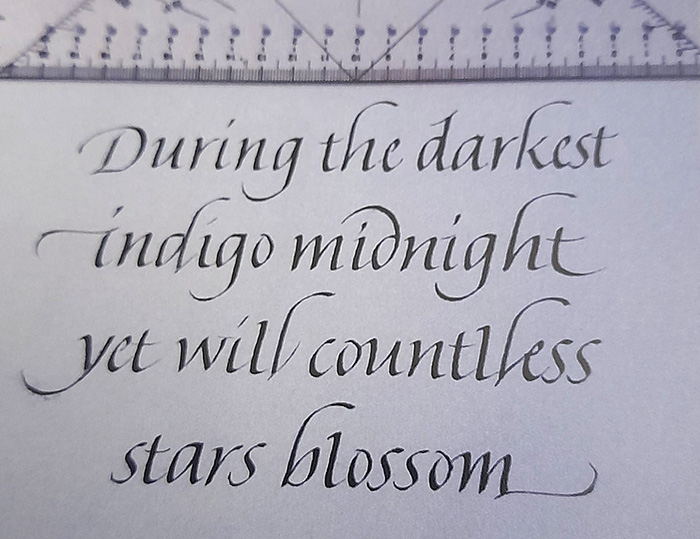 During the darkest
indigo midnight
yet will countlless
stars blossom